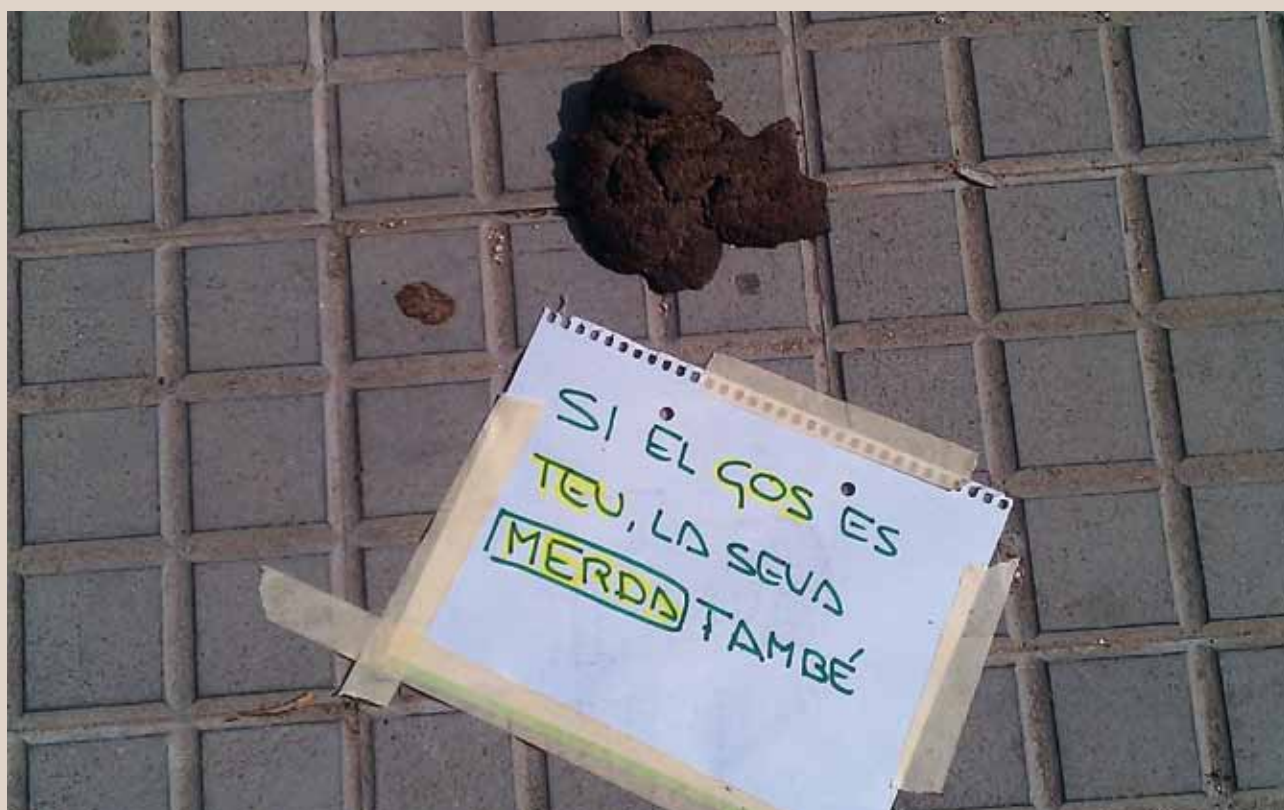 SI EL GOS ES
TEU, LA SEVA
MERDA TAMBÉ